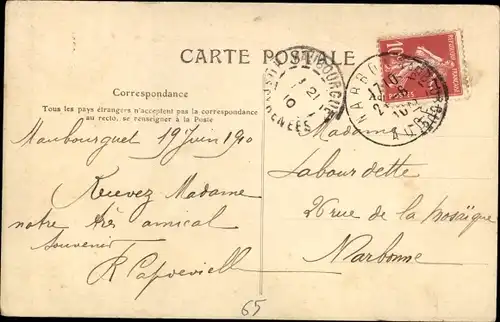 CARTE POSTALE
Correspondance
Tous les pays étrangers n'acceptent pas la correspondance
au recto, se renseigner à la Poste
10
Maubourguet 19 Juin 1910
Recevez Madame
notre très amical
souvenir
Madame
Labourdette
26 rue de la Mosaïque
Narbonne
65